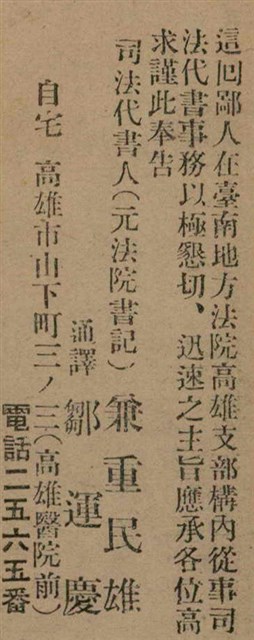 這回鄙人在臺南地方法院高雄支部構內從事司
法代書事務以極懇切、迅速之主旨應承各位高
求謹此奉告
司法代書人(元法院書記) 兼重民雄
通譯 鄒運慶
自宅 高雄市山下町三ノ三(高雄醫院前)
電話二五六五番